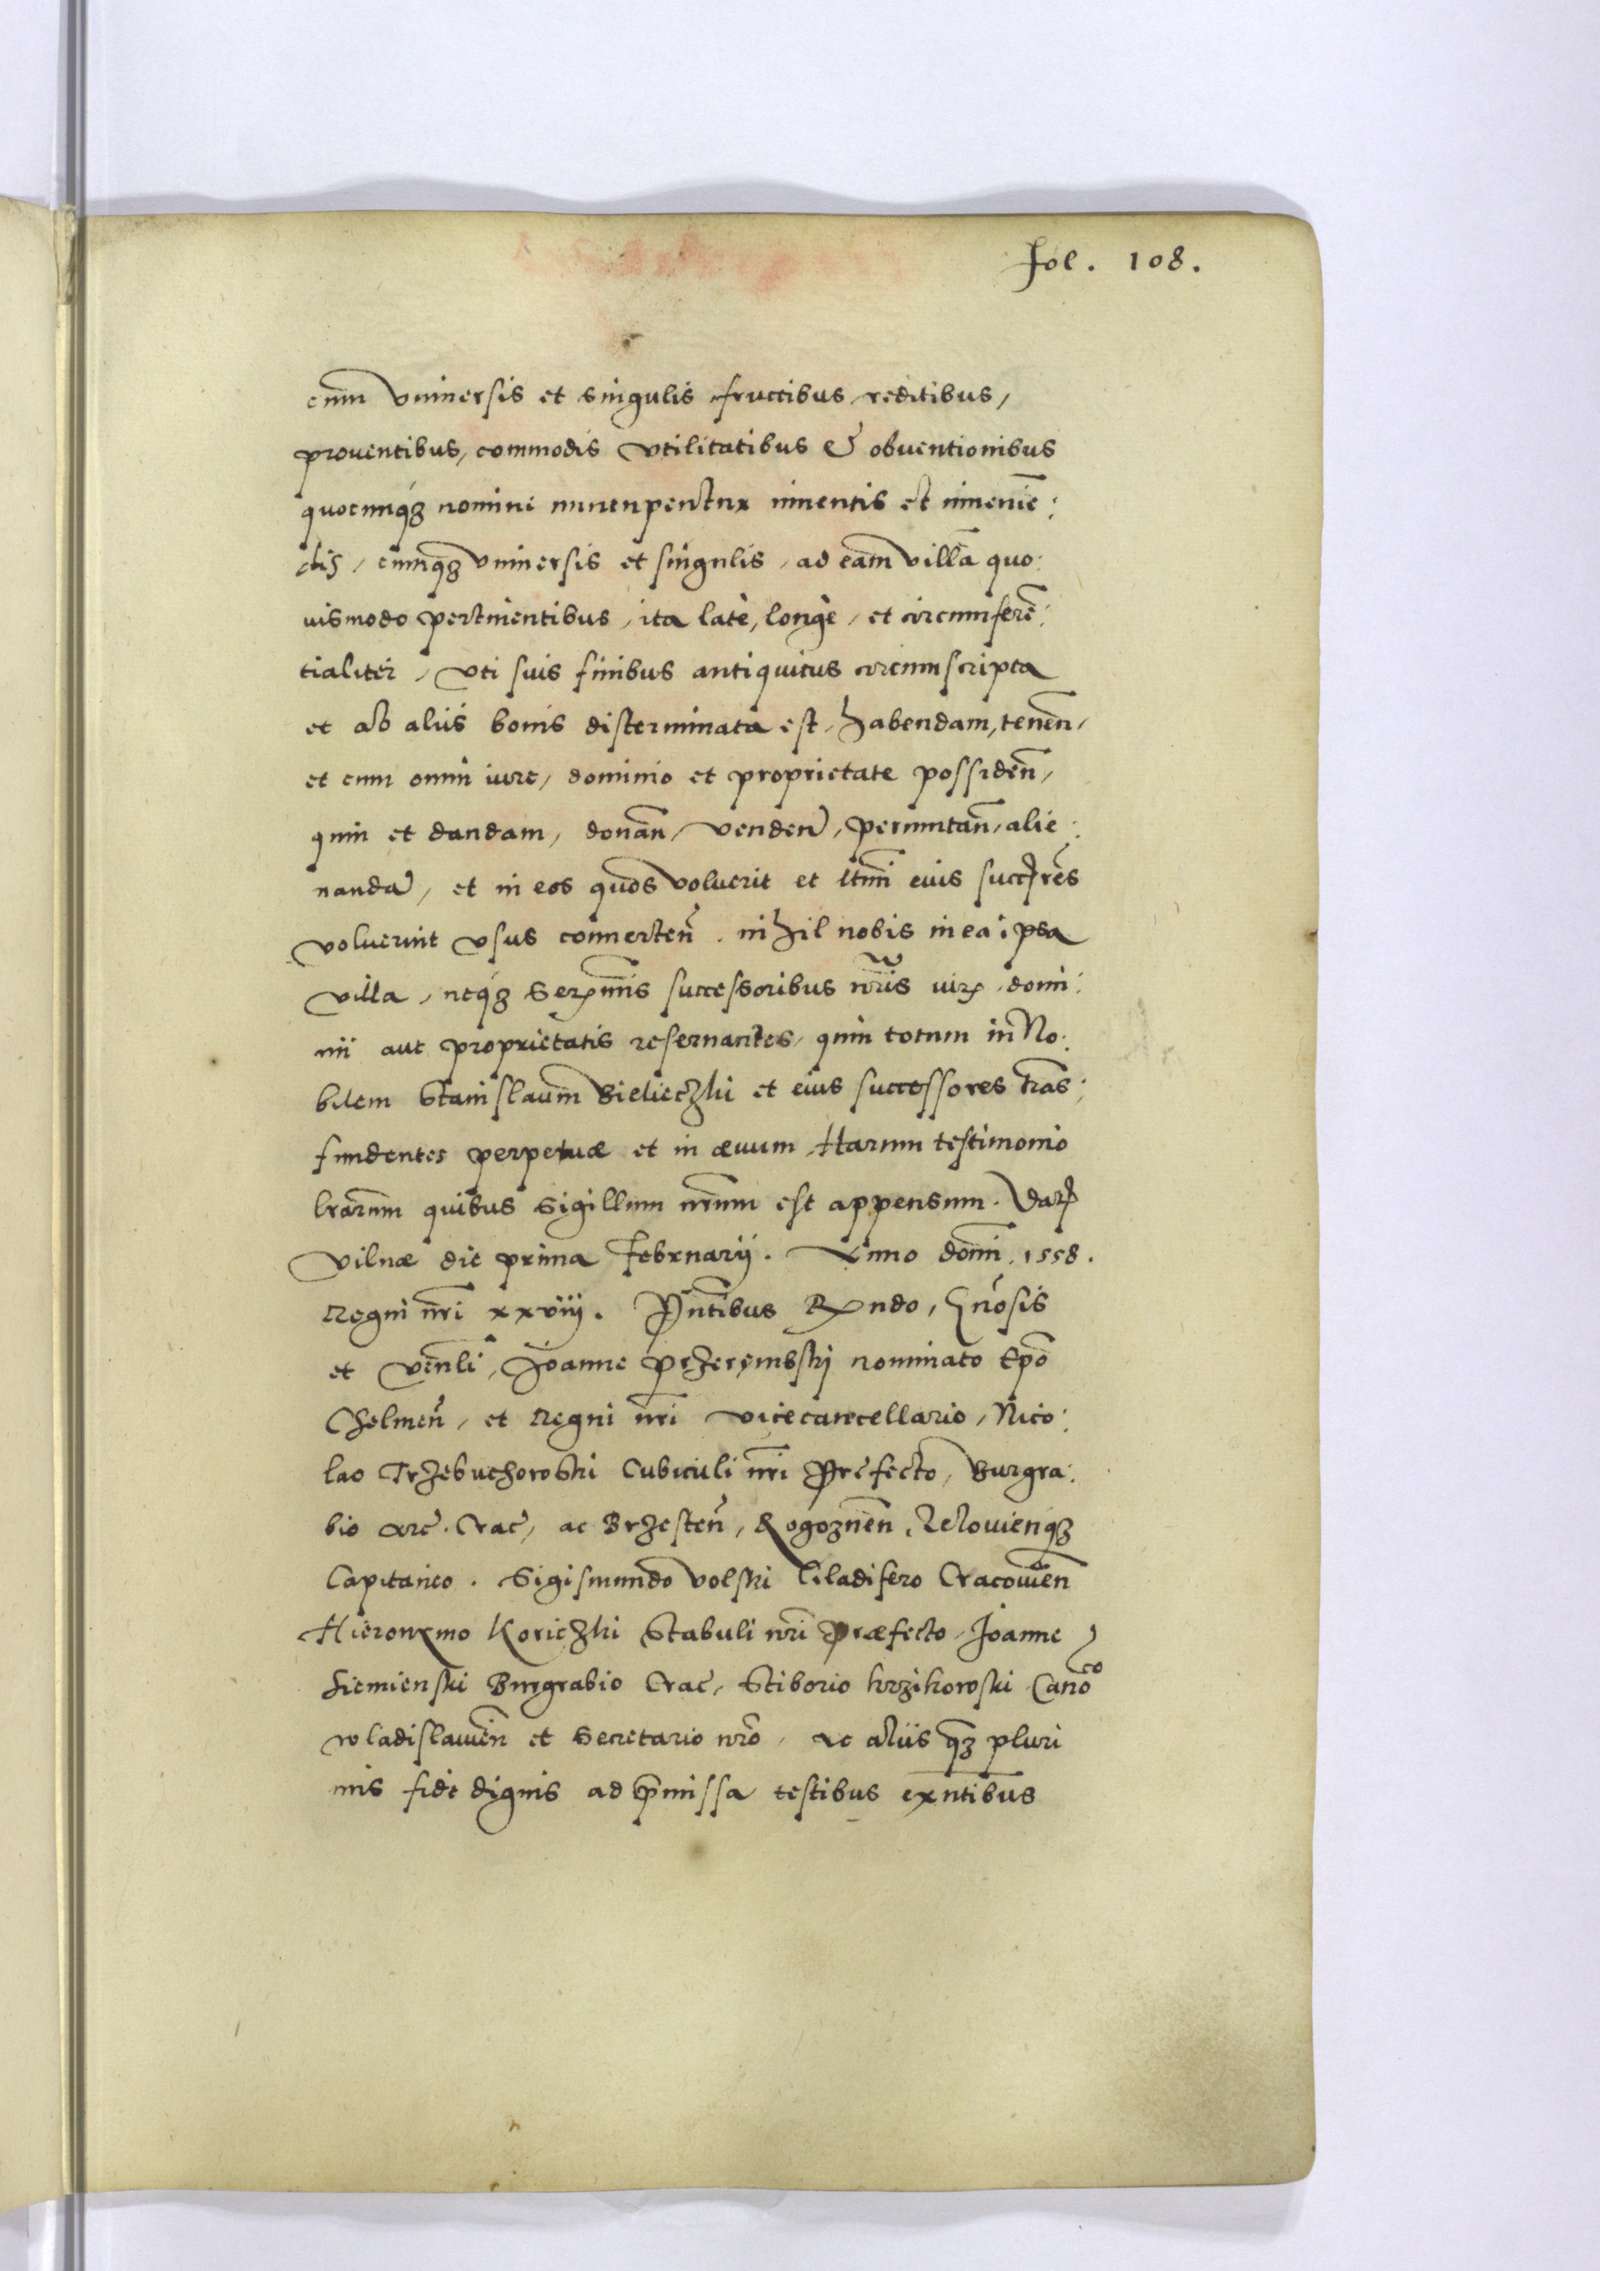 fol. 108.
cum vniuersis et singulis fructibus, reditibus,
prouentibus, commodis vtilitatibus & obuentionibus
quocunq3 nomini nuncupentur inuentis et inuenie:
dis, cumq3 vniuersis et singulis, ad eam villā quo:
uismodo pertinentibus, ita latè, longè, et circumferē:
tialiter, vti suis finibus antiquitus circumscripta
et ab aliis bonis disterminata est, habendam, tenen̄,
et cum omni iure, dominio et proprietate possiden̄,
quin et dandam, donan̄, venden̄, permutan̄, alie:
nandā, et in eos quos voluerit et ltīmi eius succ̄res
voluerint vsus conuerten̄. nihil nobis in ea ipsa
villa, neq3 Ser̄mis successoribus nr̄is iur̄, domi:
nii aut proprietatis reseruantes, quin totum in No:
bilem Stanislaum Bielieczki et eius successores trās:
fundentes perpetuæ et in æuum Harum testimonio
lrārum quibus Sigillum nr̄um est appensum. Dat̄
Vilnæ die prima Februarij. Anno domi. 1558.
Regni nr̄i xxviij. Pn̄tibus R̄ndo, Gn̄osis
et Venlī, Joanne przerembskj nominato Epō
Chelmen̄, et Regni nr̄i vicecancellario, Nico:
lao Trzebuchowski Cubiculi nr̄i Prefecto, Burgra:
bio arc. Crac̄, ac Brzesten̄, Rogoznen̄, Lelouienq3
Capitaneo. Sigismundo Volski Cladifero Cracouien̄
Hieronymo Koriczki Stabuli nr̄i Præfecto, Joanne
Siemienski Burgrabio Crac̄, Stiborio krzikowski Canōco
wladislauien̄ et Secretario nr̄o, ac aliis q3 pluri
mis fide dignis ad p̄missa testibus exn̄tibus